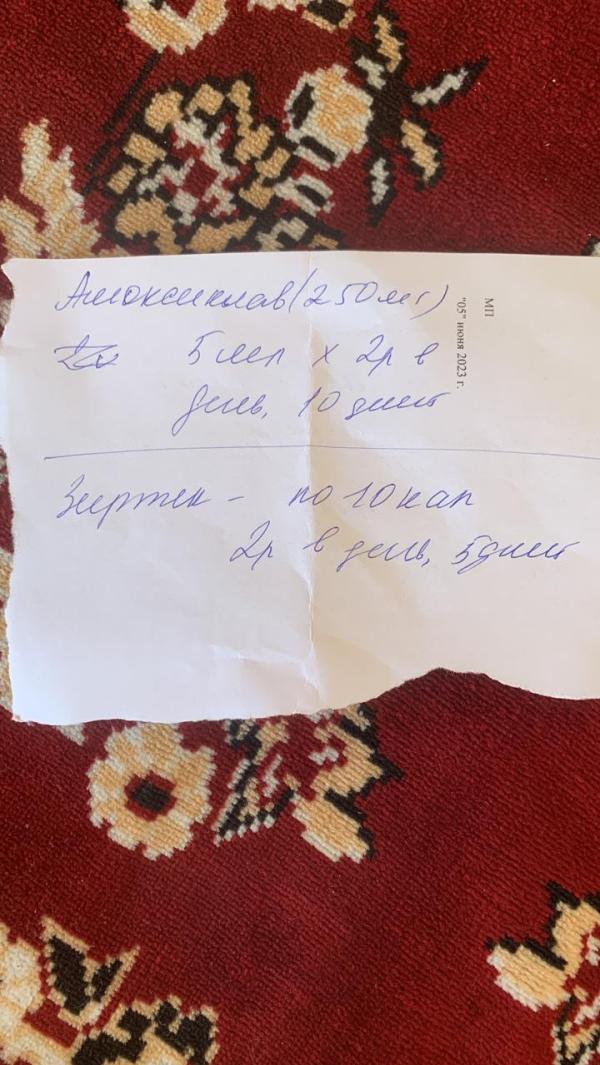 Амоксиклав (250мг)
5мл х 2р в
день, 10 дней
Зиртек - по 10 кап
2р в день, 5 дней
МП
"05" июня 2023 г.